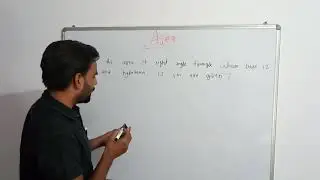 Area
area right angle triangle whose base 12
and hypotenuse 13 cm are given ?